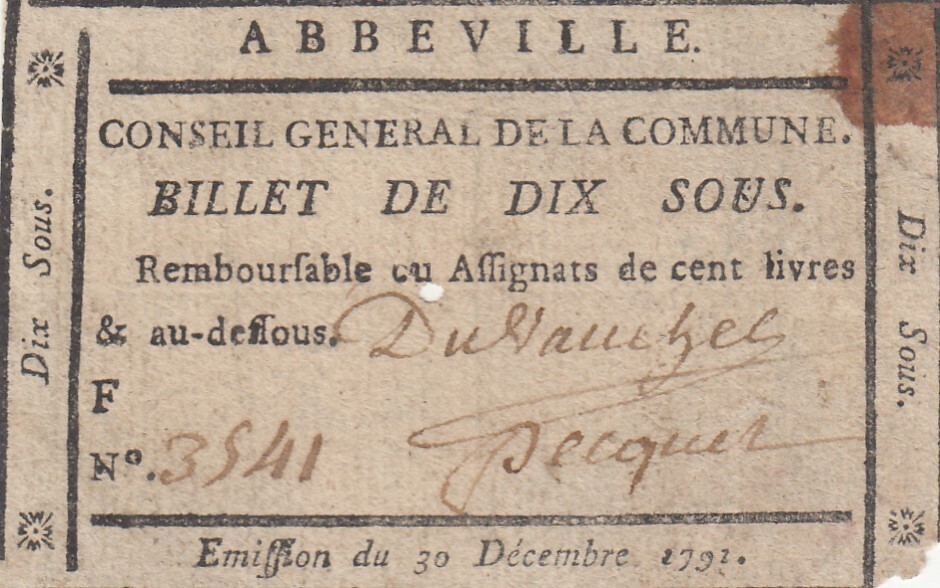 ABBEVILLE.
CONSEIL GENERAL DE LA COMMUNE.
BILLET DE DIX SOUS.
Rembourſable ou Aſſignats de cent livres
& au-deſſous. DuVauchel
F
Nº. 3541 Pecquet
Emiſſion du 30 Décembre 1791.
Dix Sous.
Dix Sous.